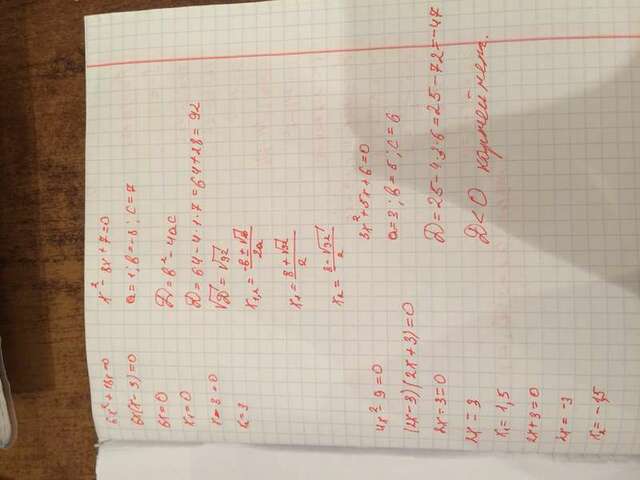 6x² + 18x = 0
6x(x - 3) = 0
6x = 0
x₁ = 0
x - 3 = 0
x₂ = 3
x² - 8x + 7 = 0
a = 1; b = -8; c = 7
D = b² - 4ac
D = 64 - 4·1·7 = 64 + 28 = 92
√D = √92
x₁,₂ = (-b ± √D)/2a
x₁ = (8 + √92)/2
x₂ = (8 - √92)/2
4x² - 9 = 0
(2x - 3)(2x + 3) = 0
2x - 3 = 0
2x = 3
x₁ = 1,5
2x + 3 = 0
2x = -3
x₂ = -1,5
3x² + 5x + 6 = 0
a = 3; b = 5; c = 6
D = 25 - 4·3·6 = 25 - 72 = -47
D < 0 корней нет.